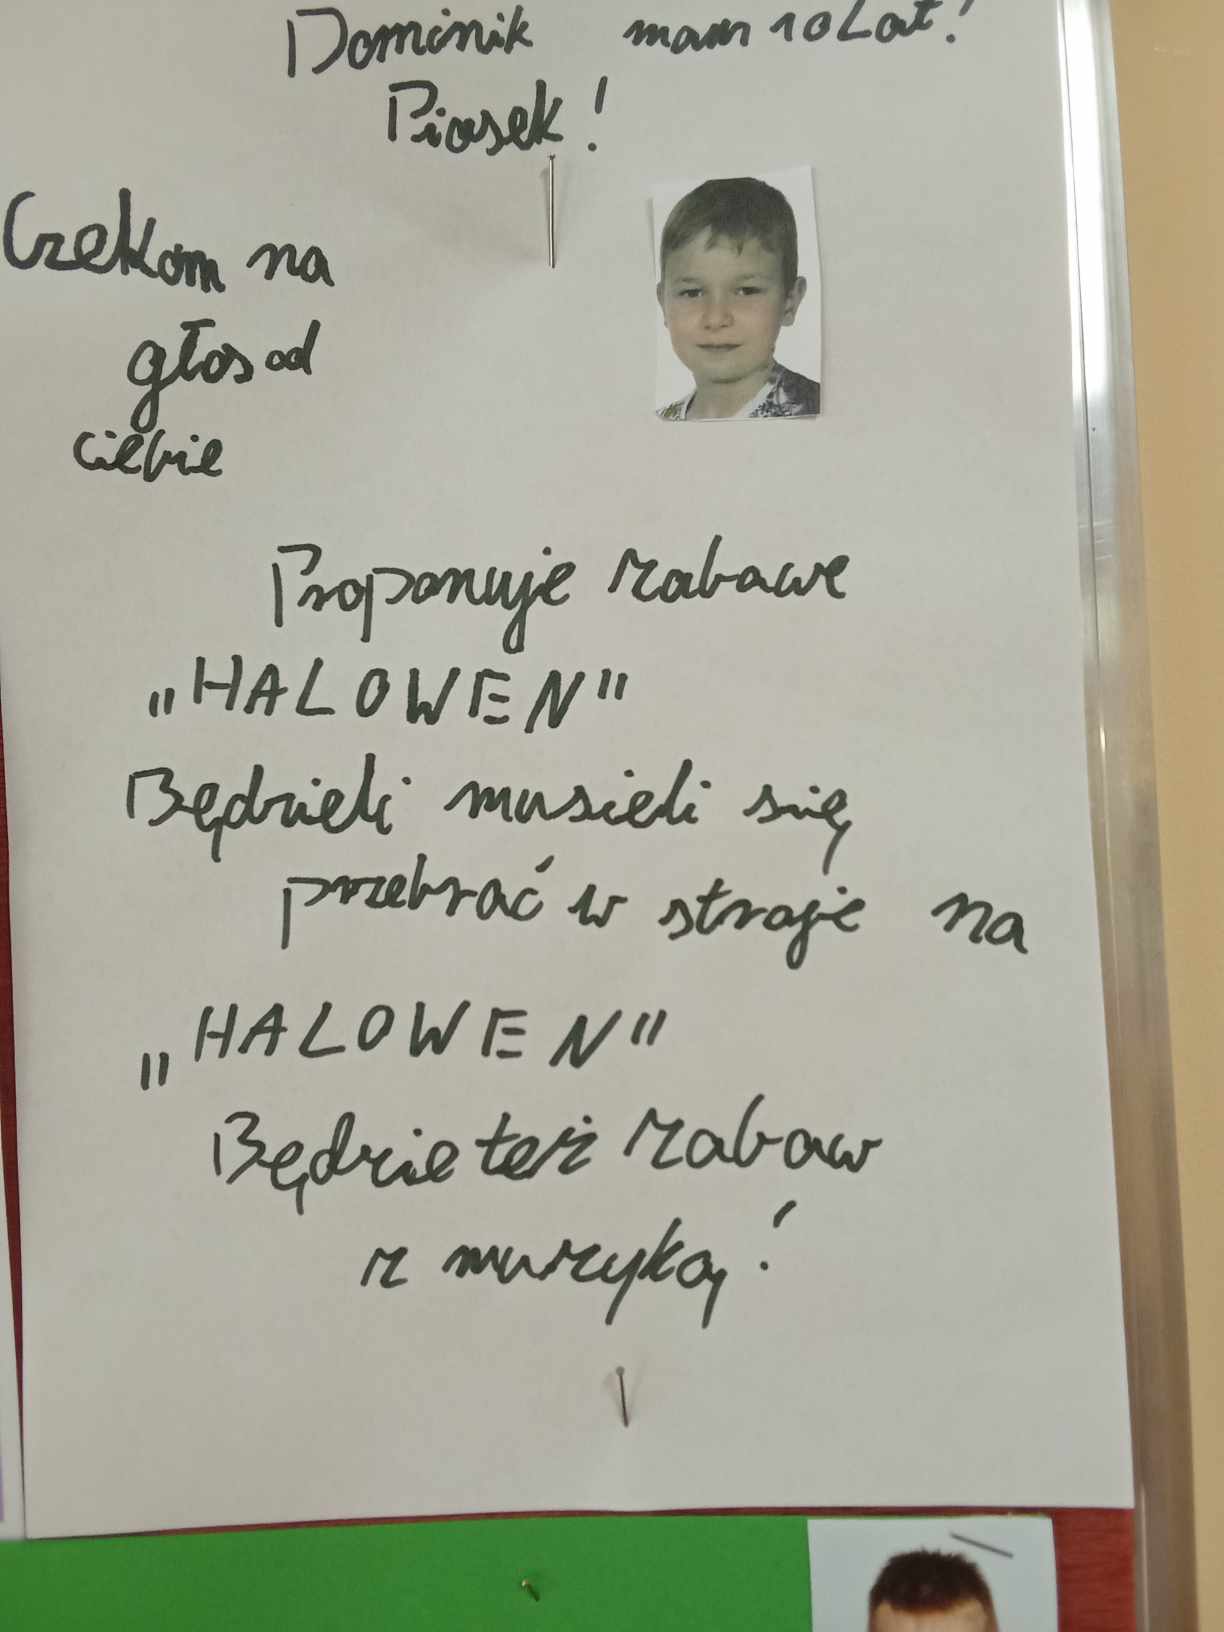 Dominik mam 10 Lat!
Piasek!
Czekam na
głos od
ciebie
Proponuje zabawe
„HALOWEN"
Będzieli musieli się
przebrać w stroje na
„HALOWEN"
Będzie też zabaw
z muzyką!